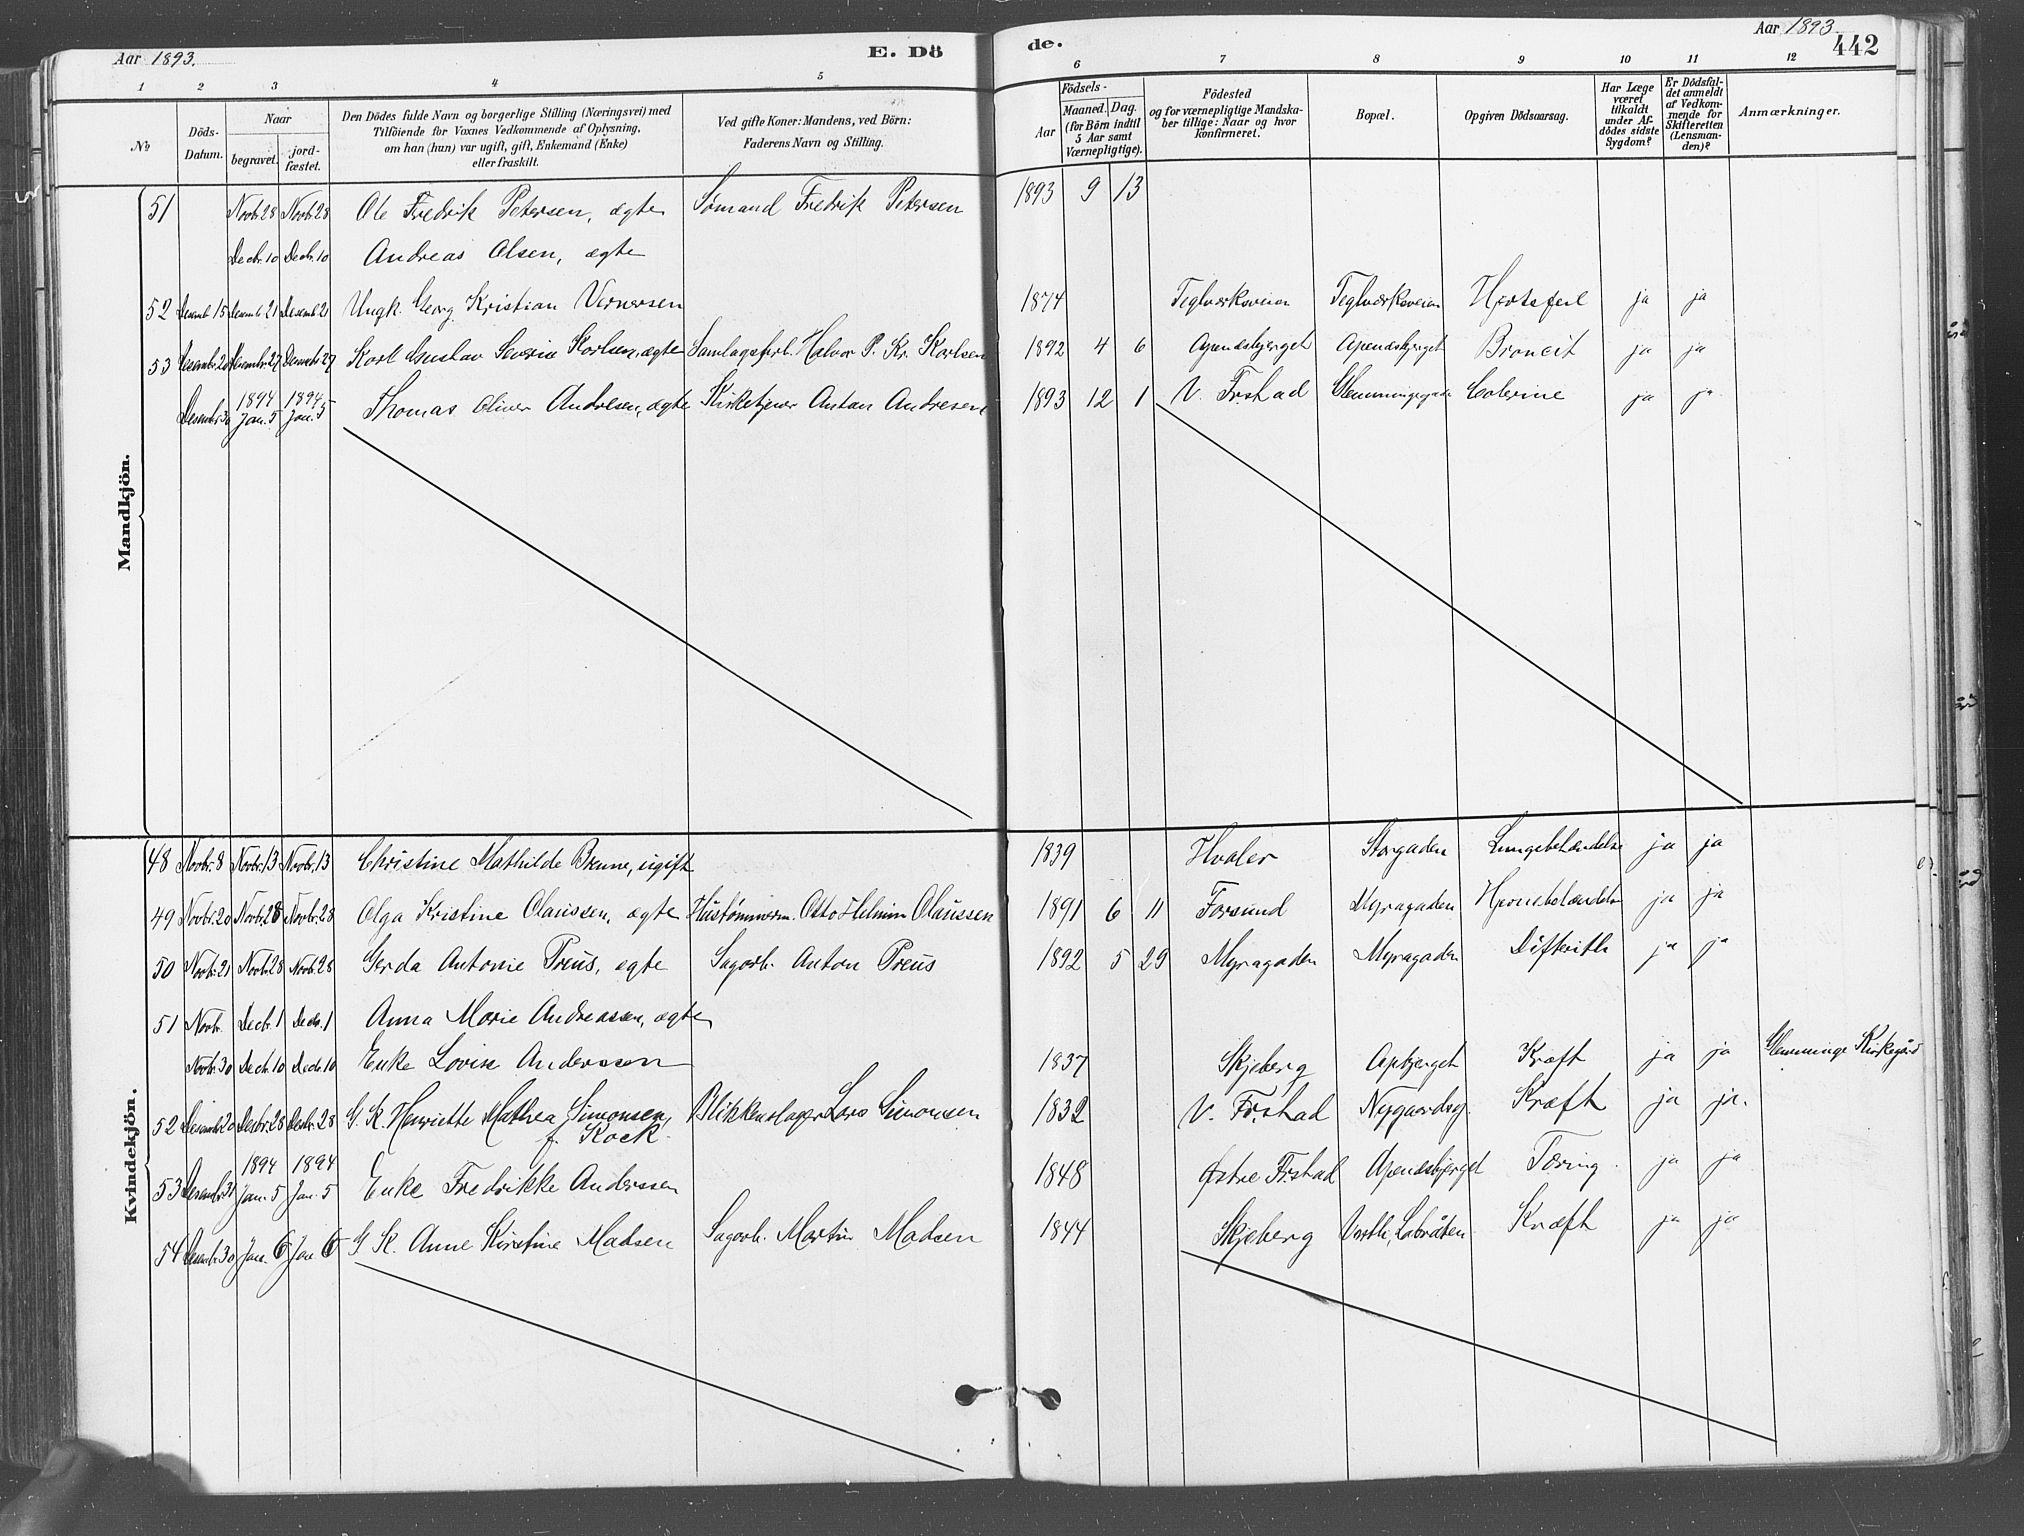 Aar 1893.
E. Dö
de.
Aar 1893
442
1 2 3 4 5 6 7 8 9 10 11 12
No
Döds-Datum.
Naar
begravet.
jord-fæstet.
Den Dödes fulde Navn og borgerlige Stilling (Næringsvei) med
Tilföiende for Voxnes Vedkommende af Oplysning,
om han (hun) var ugift, gift, Enkemand (Enke)
eller fraskilt.
Ved gifte Koner: Mandens, ved Börn:
Faderens Navn og Stilling.
Födsels-
Aar
Maaned. Dag.
(for Börn indtil
5 Aar samt
Værnepligtige).
Födested
og for værnepligtige Mandska-
ber tillige: Naar og hvor
konfirmeret.
Bopæl.
Opgiven Dödsaarsag.
Har Læge
været
tilkaldt
under Af-
dödes sidste
Sygdom?
Er Dödsfal-
det anmeldt
af Vedkom-
mende for
Skifteretten
(Lensman-
den)?
Anmærkninger.
Mandkjön.
51 Novbr. 28 Novbr. 28 Ole Fredrik Petersen, ægte Sømand Fredrik Petersen 1893 9 13
Decbr. 10 Decbr. 10 Andreas Olsen, ægte
52 Desemb 15 Desemb 21 Desemb 21 Ungk. Georg Kristian Vernersen 1874 Teglverksveien Teglverksveien Hjertefeil ja ja
53 Desembr. 20 Desembr. 27 Desembr 27 Karl Gustav Severin Karlsen, ægte Samlagsfrb. Halvor P. Kr. Karlsen 1892 4 6 Apenæsbjerget Apenæsbjerget Broncit ja ja
Desembr. 30 1894 Jan. 5 1894 Jan. 5 Thomas Oliver Andresen, ægte Kirketjener Anton Andresen 1893 12 1 V. Frstad Glemmingegaden Colerine ja ja
Kvindekjön.
48 Novbr. 8 Novbr. 13 Novbr. 13 Christine Mathilde Brune, ugift 1839 Hvaler Storgaden Lungebetændelse ja ja
49 Novbr. 20 Novbr. 28 Novbr. 28 Olga Kristine Olaussen, ægte Hustømmerm. Otto Helmin Olaussen 1891 6 11 Forsund Myragaden Hjernebetændelse ja ja
50 Novbr. 21 Novbr. 28 Novbr. 28 Gerda Antonie Preus, ægte Sagarb. Anton Preus 1892 5 29 Myragaden Myragaden Difterith ja ja
51 Novbr. Decbr. 1 Decbr. 1 Anna Marie Andreassen, ægte
Novbr. 30 Decbr. 10 Decbr. 10 Enke Lovise Anderssen 1837 Skjeberg Apbjerget Kræft ja ja Glemminge Kirkegård
52 Desembr 20 Desbr. 28 Desbr. 28 G. K. Henriette Mathea Simonsen, Blikkenslager Lars Simonsen 1832 V. Frstad Nygaardsg. Kræft ja ja.
f. Kock.
53 Desembr. 31 1894 Jan. 5 1894 Jan. 5 Enke Fredrikke Anderssen 1848 Østre Frstad Apenæsbjerget Tæring. ja ja
54 Desembr. 30 Jan. 6 Jan 6 G. K. Anne Kirstine Madsen Sagarb. Martin Madsen 1844 Skjeberg Labråten Kræft ja ja